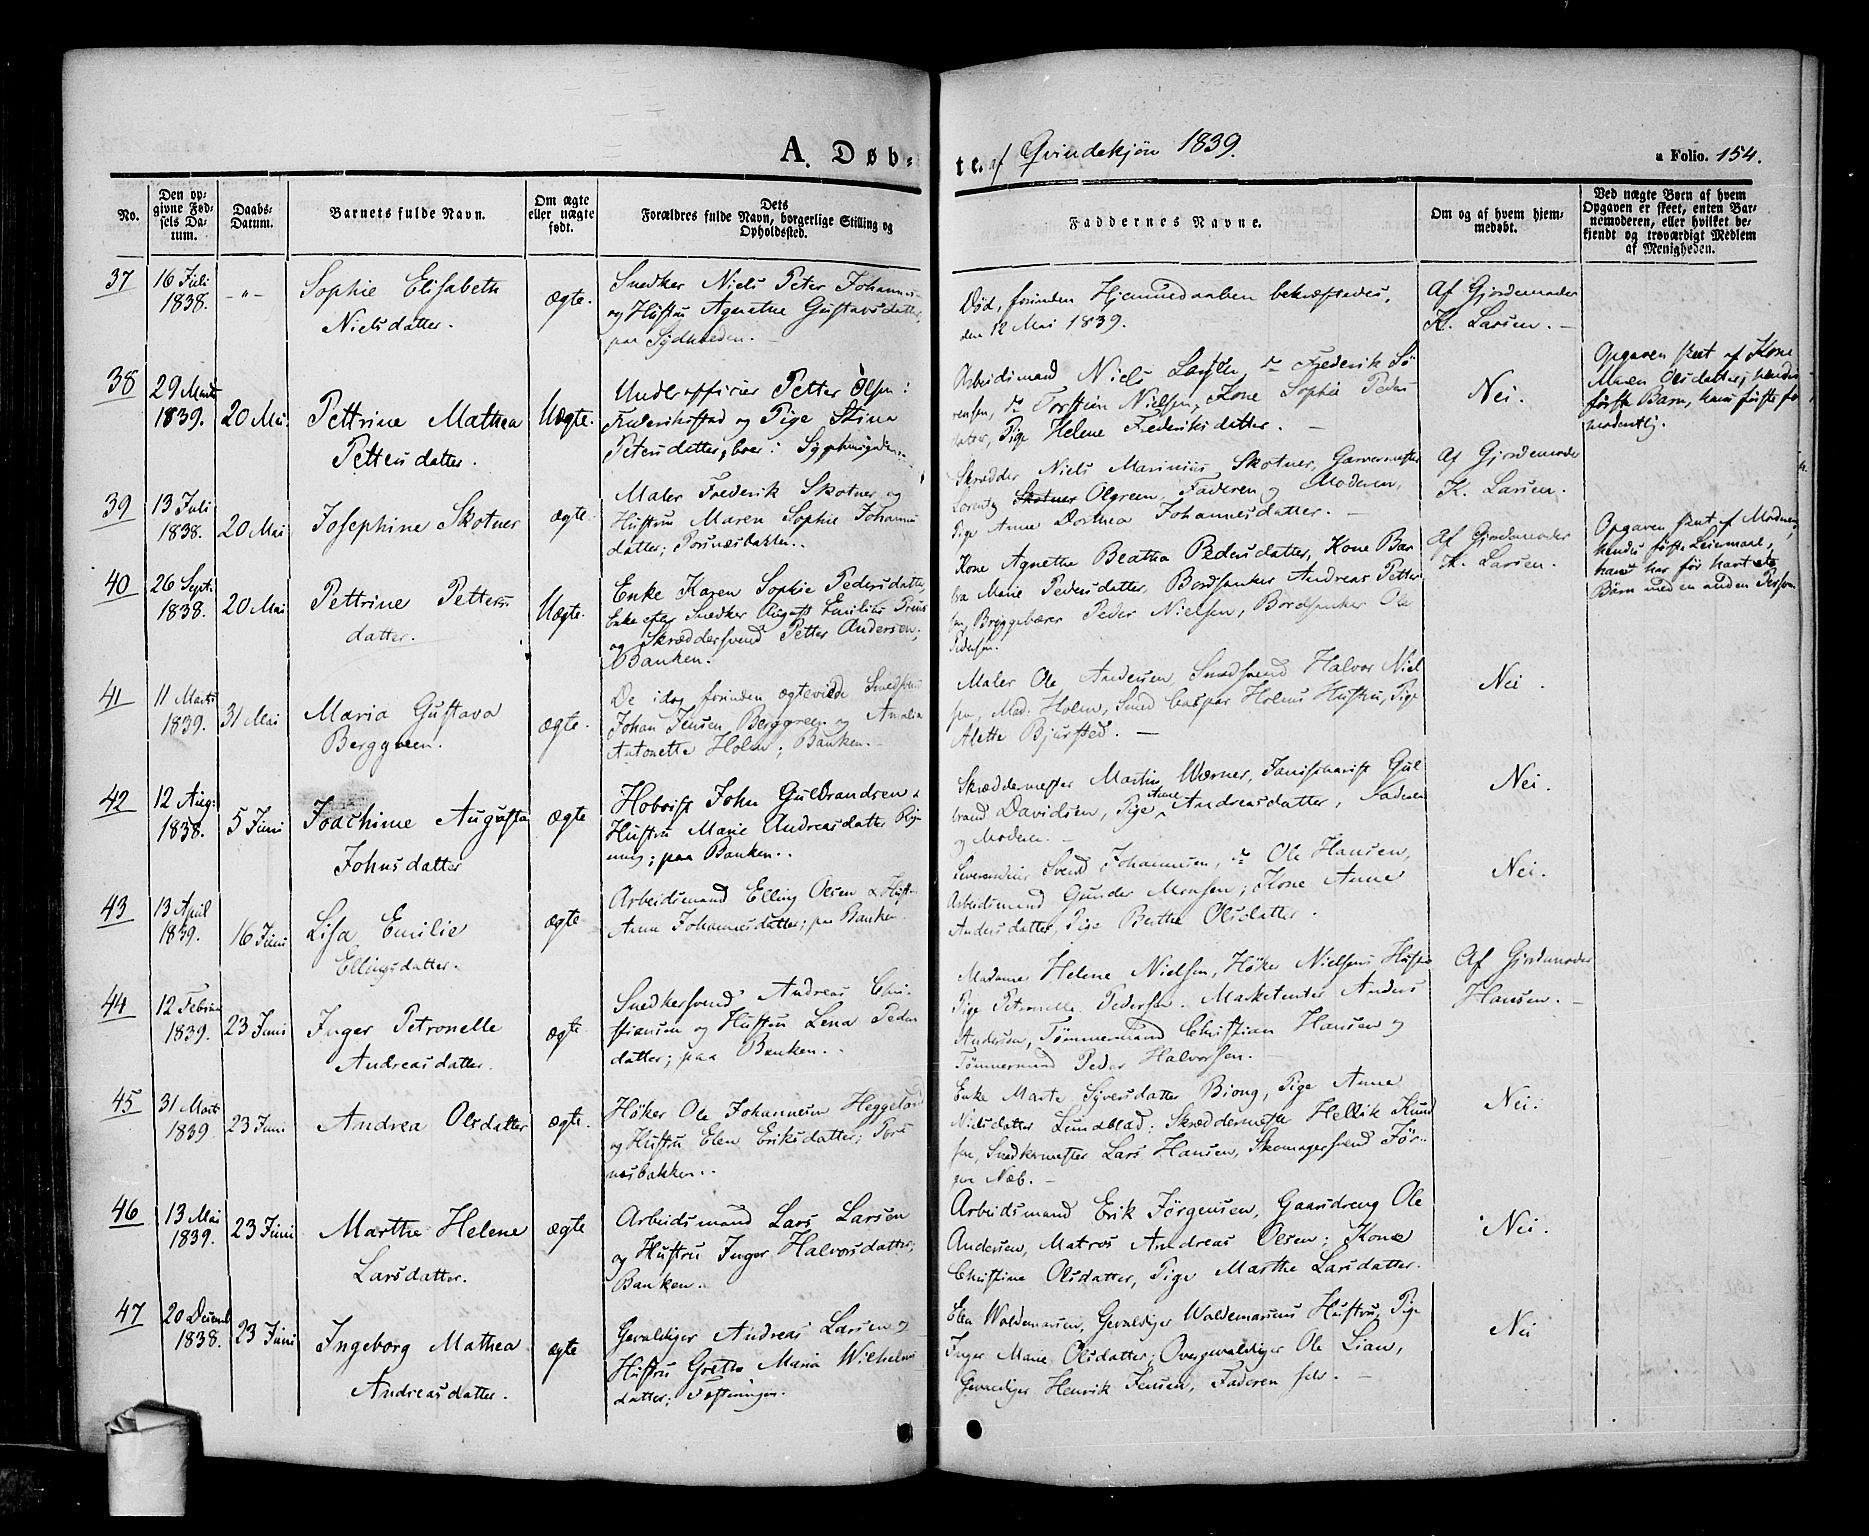 A. Døb-
te. af Qvindekjøn 1839.
a Folio. 154.
No.
Den op-
givne Fød-
sels Da-
tum.
Daabs-
Datum.
Barnets fulde Navn.
Om ægte
eller uægte
født.
Dets
Forældres fulde Navn, borgerlige Stilling og
Opholdssted.
Faddernes Navne.
Om og af hvem hjem-
medøbt.
Ved uægte Børn af hvem
Opgaven er skeet, enten Bar-
nemoderen, eller hvilket be-
kjendt og troværdigt Medlem
af Menigheden.
37
16 Juli
1838.
-"-
Sophie Elisabeth
Nielsdatter.
ægte.
Snedker Niels Peter Johannes-
og Hustru Agnethe Gustavsdatter,
paa
Død, forinden Hjemmedaaben bekræftedes,
den 12 Mai 1839.
Af Gjordemoder
K. Larsen.
38
29 Marts
1839.
20 Mai.
Pettrine Mathea
Pettersdatter.
Uægte.
Underofficier Petter Olsen:
Frederikstad og Pige Stina
Petersdatter, boer:
Arbeidsmand Niels Larsen, do Frederik Sø
rensen, do Torstian Nielsen, Kone Sophie Peders
datter, Pige Helene Frederiksdatter.
Nei.
Opgaven skeet af Kone
Maren Olsdatter; hendes
første Barn, hans første for
modentlig.
39
13 Juli
1838.
20 Mai
Josephine Skotner
ægte.
Maler Frederik Skotner og
Hustru Maren Sophie Johannes
datter; Torsnæsbakken.
Skrædder Niels Marinius Skotner, Garvermester
Lorentz Skotner Olgreen, Faderen og Moderen,
Pige Anne Dorthea Johannesdatter.
Af Gjordemoder
K. Larsen.
40
26 Sept.
1838.
20 Mai
Pettrine Petters
datter.
Uægte.
Enke Karen Sophie Pedersdatter,
Enke efter Snedker August Emilius
og Skræddersvend Petter Andersen;
Banken.
Kone Agnethe Beatha Pedersdatter, Kone Bar
bra Marie Pedersdatter, Bordsanker Andreas Petter
sen, Bryggebærer Peder Nielsen, Bordsanker Ole
Pedersen.
Af Gjordemoder
K. Larsen.
Opgaven skeet af Moderen;
hendes første Leiermaal,
han har før havt
Børn med en anden Person
41
11 Marts
1839.
31 Mai
Maria Gustava
Berggreen.
ægte.
De idag forinden ægteviede Smedsvend
Johan Jensen Berggreen og Amalia
Antonette Holm; Banken.
Maler Ole Andersen, Smedsvend Halvor Niel
sen, Mad. Holm, Smed Caspar Holms Hustru, Pige
Alette Bjursted.
Nei.
42
12 Aug:
1838.
5 Juni
Joachime Augusta
Johnsdatter
ægte
Hoboist John Gulbrandsen &
Hustru Marie Andreasdatter
paa Banken.
Skræddermester Martin Wærner, Janitscharist Gul
brand Davidsen, Pige Anne Andreasdatter, Faderen
og Moderen.
Nei.
43
13 April
1839.
16 Juni
Lisa Emilie
Ellingsdatter.
ægte.
Arbeidsmand Elling Olsen & Hust-
Anne Johannesdatter; paa Banken.
Svend Johannesen, do Ole Hansen,
Arbeidsmand Gunder Monsen; Kone Anne
Andersdatter, Pige Berthe Olsdatter.
Nei.
44
12 Februar
1839.
23 Juni
Inger Petronelle
Andreasdatter.
ægte
Snedkersvend Andreas Chri-
stiansen og Hustru Lena Peders
datter; paa Banken.
Madame Helene Nielsen, Høker Nielsens Hustru
Pige Petronelle Pedersen. Marketenter Anders
Andersen, Tømmermand Christian Hansen og
Tømmermand Peder Halvorsen.
Af Gjordemoder
Hansen.
45
31 Marts
1839
23 Juni
Andrea Olsdatter
ægte.
Høker Ole Johannesen Heggelund
og Hustru Elen Eriksdatter; Tors
næsbakken.
Enke Marte Syversdatter Biong, Pige Anne
Nielsdatter Lundblad; Skræddermester Hellik Knud
sen, Snedkermester Lars Hansen, Skomagersvend Jør-
gen Næb.
Nei.
46
13 Mai
1839.
23 Juni
Marthe Helene
Larsdatter.
ægte
Arbeidsmand Lars Larsen
og Hustru Inger Halvorsdatter,
Banken.
Arbeidsmand Erik Jørgensen, Gaardsdreng Ole
Andersen, Matros Andreas Olsen; Kone
Christine Olsdatter, Pige Marthe Larsdatter.
Nei.
47
20 Decemb
1838.
23 Juni
Ingeborg Mathea
Andreasdatter.
ægte
Gevaldiger Andreas Larsen og
Hustru Grethe Maria Wilhelms
datter; Fæstningen.
Elen Woldemarsen, Gevaldiger Woldemarsens Hustru, Pige
Inger Marie Olsdatter; Overgevaldiger Ole Lian,
Gevaldiger Henrik Jensen, Faderen selv.
Nei